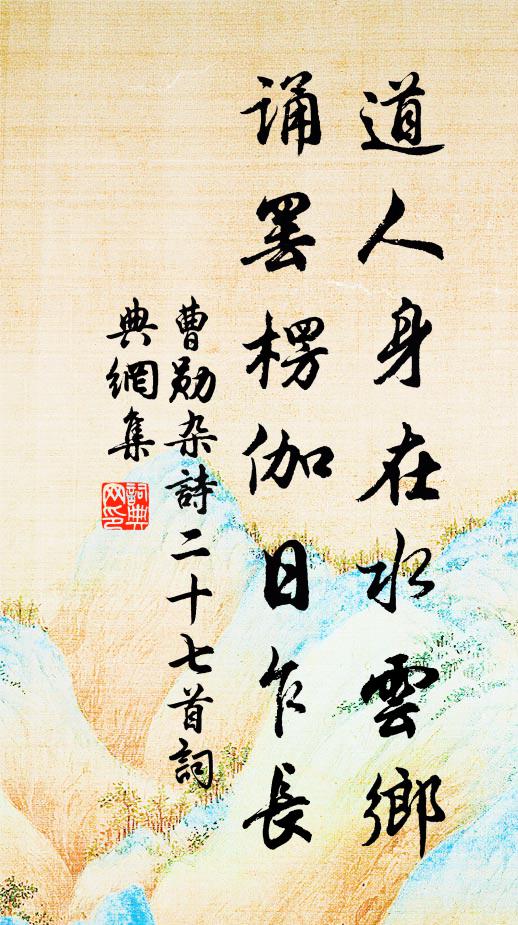 道人身在水雲鄉
誦罢楞伽日乍長
曹勛杂詩二十七首詞
典網集
詞典
网印